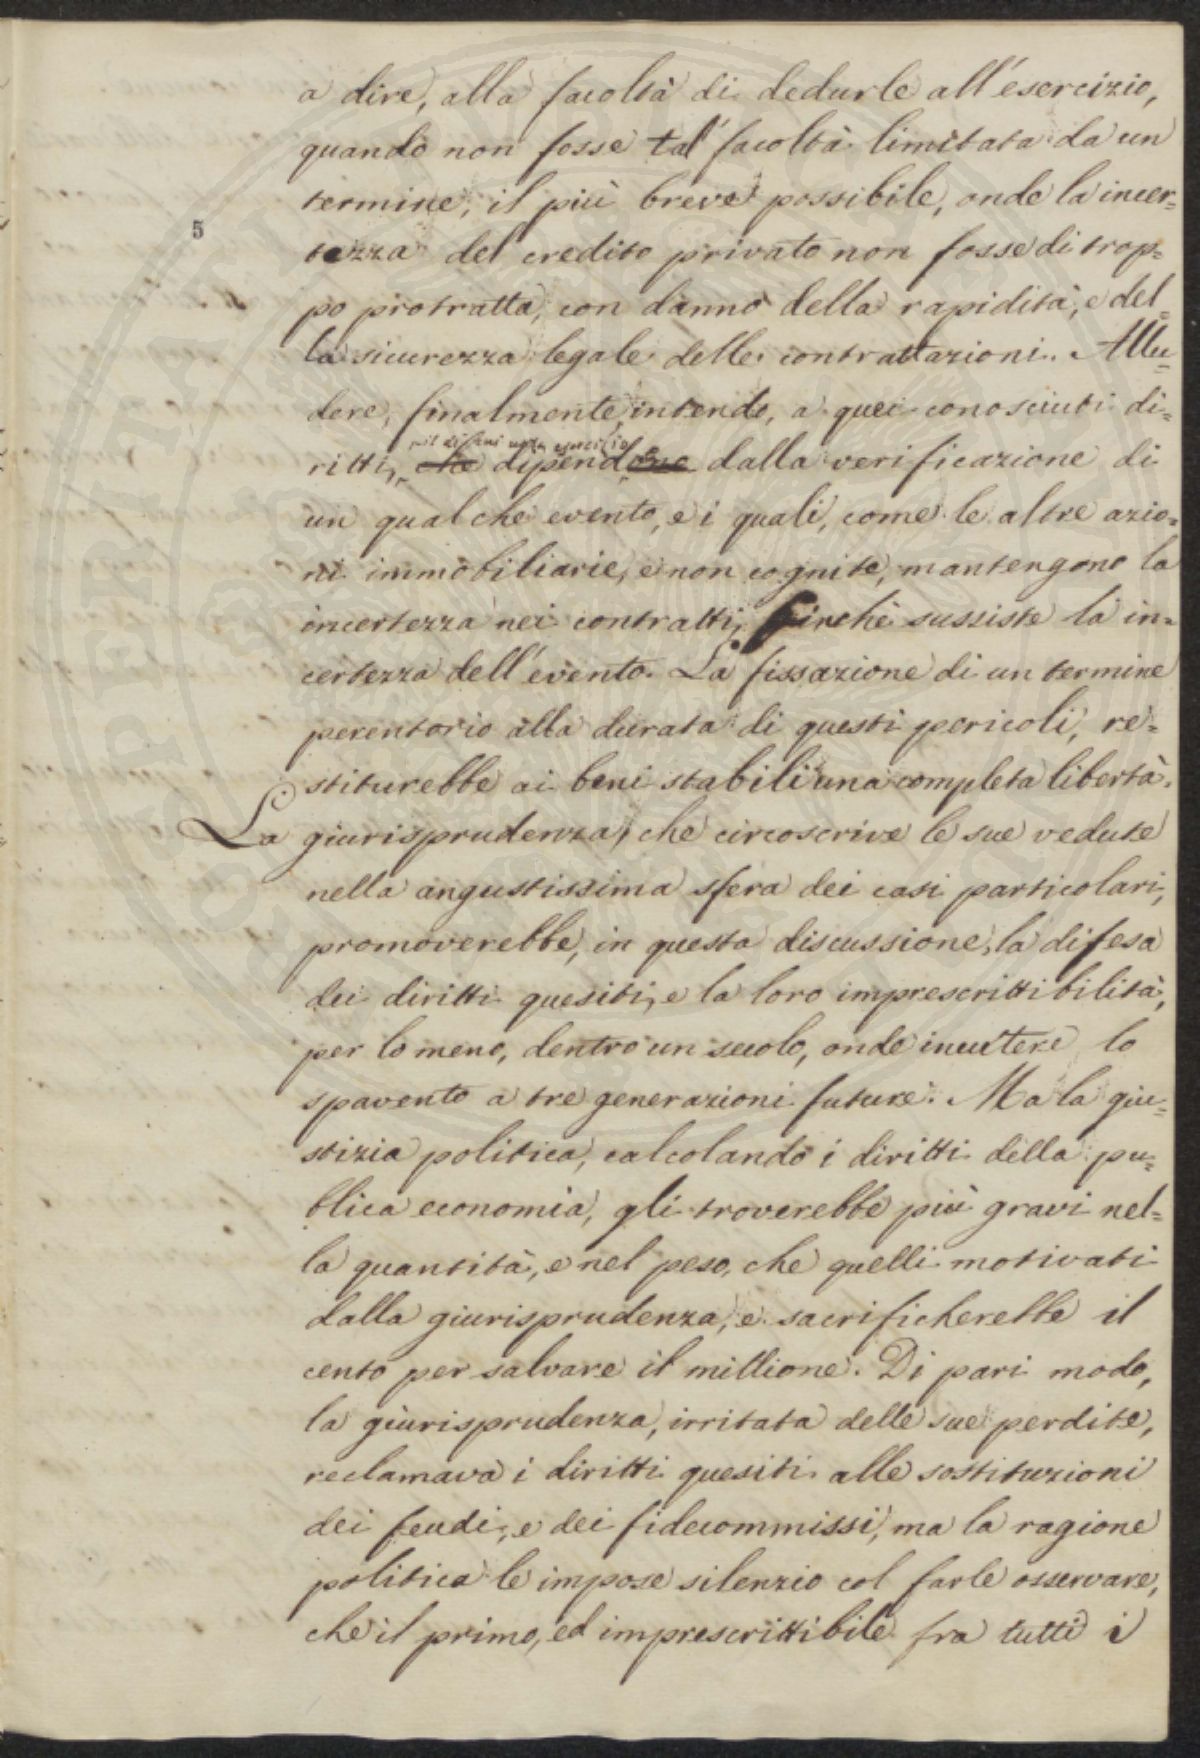 a dire, alla facoltà di dedurle all'esercizio,
quando non fosse tal facoltà limitata da un
termine, il più breve possibile, onde la incer=
5
tezza del credito privato non fosse di trop=
po protratta, con danno della rapidità, e del=
la sicurezza legale delle contrattazioni. Allu=
dere, finalmente, intendo, a quei conosciuti di=
esercizio
ritti, che dipendono dalla verificazione di
un qualche evento, e i quali, come le altre azio=
ni immobiliarie, e non cognite, mantengono la
incertezza nei contratti, finchè sussiste la in=
certezza dell'evento. La fissazione di un termine
perentorio alla durata di questi pericoli, re=
stiturebbe ai beni stabili una completa libertà.
La giurisprudenza, che circoscrive le sue vedute
nella angustissima sfera dei casi particolari,
promoverebbe, in questa discussione, la difesa
dei diritti quesiti, e la loro imprescrittibilità,
per lo meno, dentro un secolo, onde incutere lo
spavento a tre generazioni future. Ma la giu=
stizia politica, calcolando i diritti della pu=
blica economia, gli troverebbe più gravi nel=
la quantità, e nel peso, che quelli motivati
dalla giurisprudenza, e sacrificherebbe il
cento per salvare il millione. Di pari modo,
la giurisprudenza, irritata delle sue perdite,
reclamava i diritti quesiti alle sostituzioni
dei feudi, e dei fidecommissi, ma la ragione
politica le impose silenzio col farle osservare,
che il primo, ed imprescrittibile fra tutti i